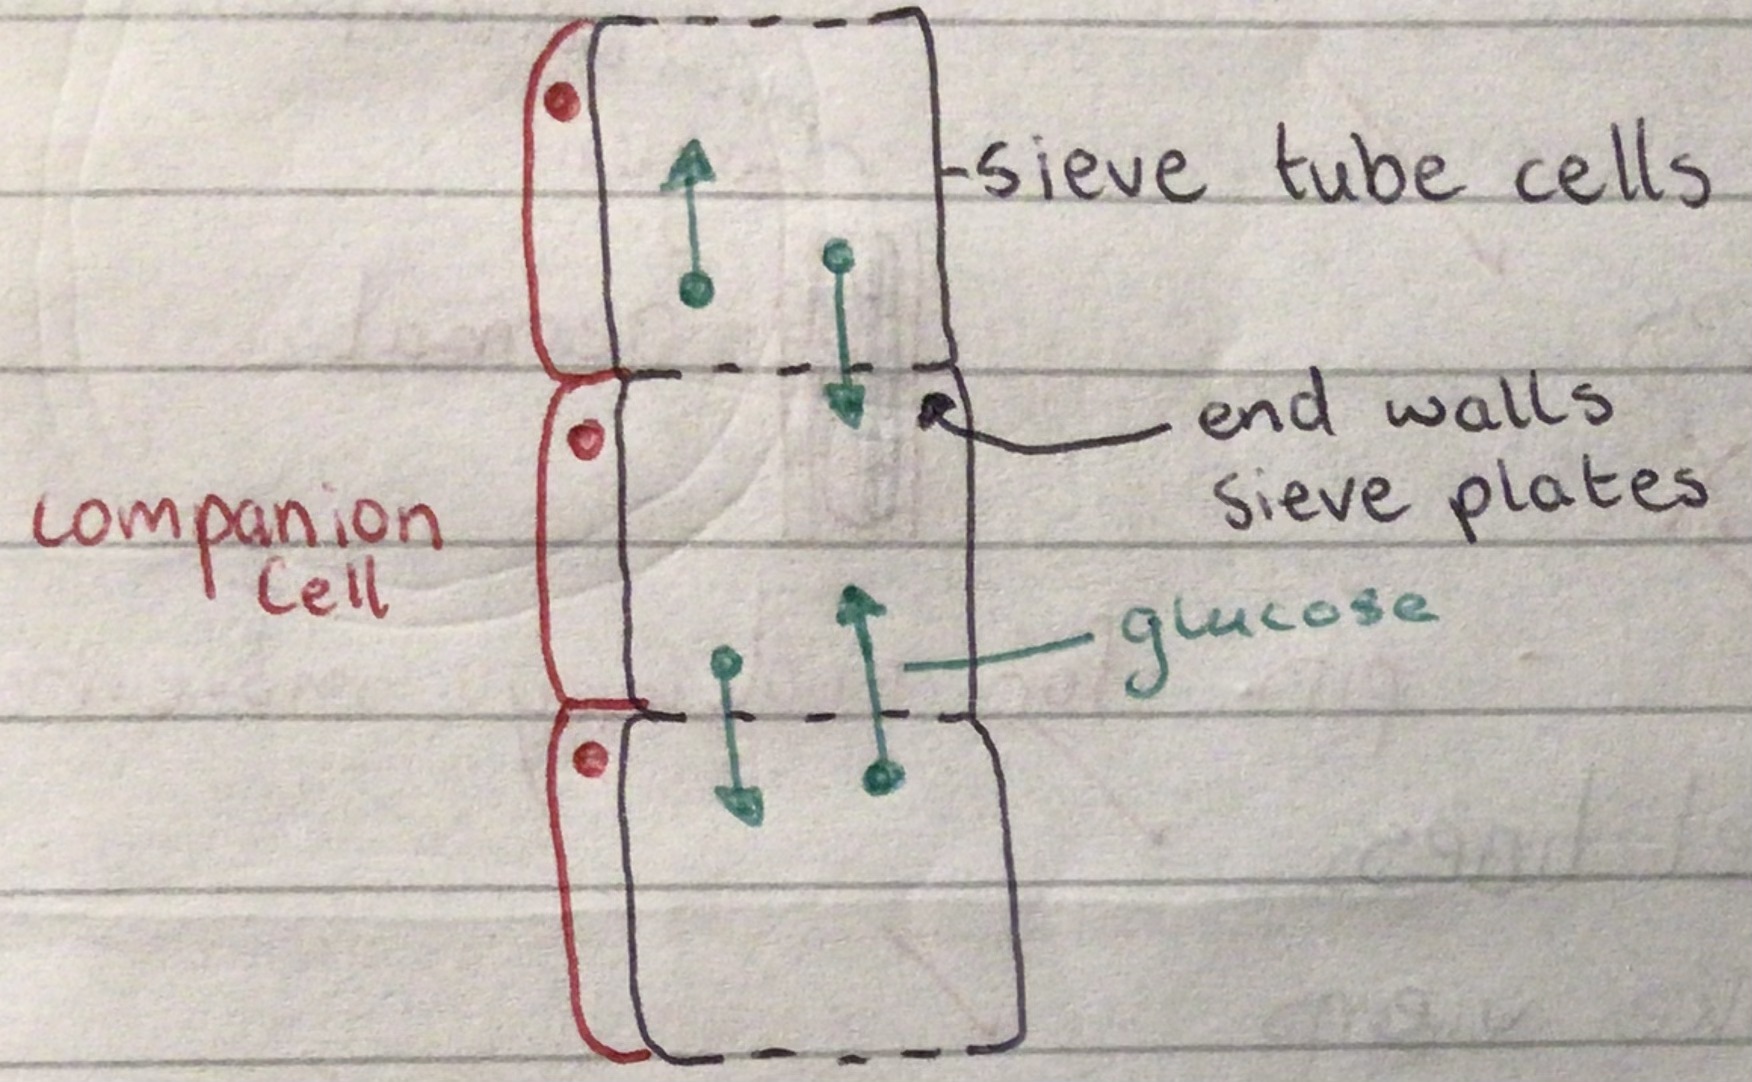 sieve tube cells
end walls
sieve plates
companion
cell
glucose